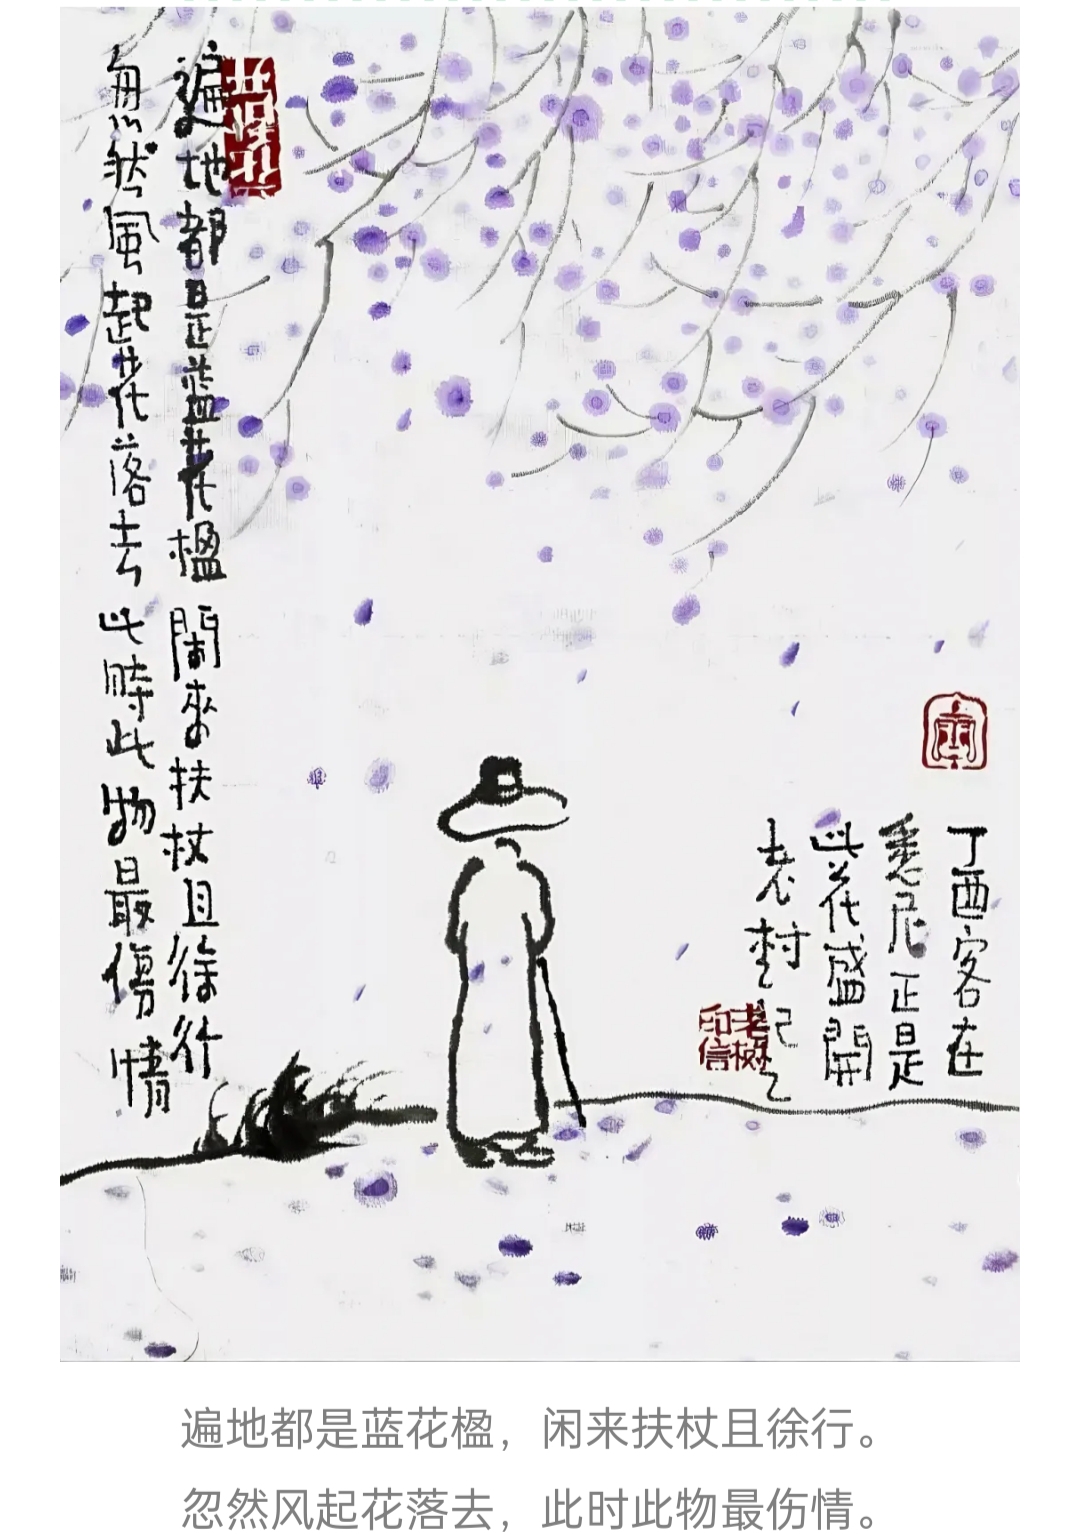 遍地都是蓝花楹 閒來扶杖且徐行
忽然風起花落去 此時此物最傷情
丁酉客在
悉尼正是
此花盛開
老树记之
老树
印信
遍地都是蓝花楹，闲来扶杖且徐行。
忽然风起花落去，此时此物最伤情。